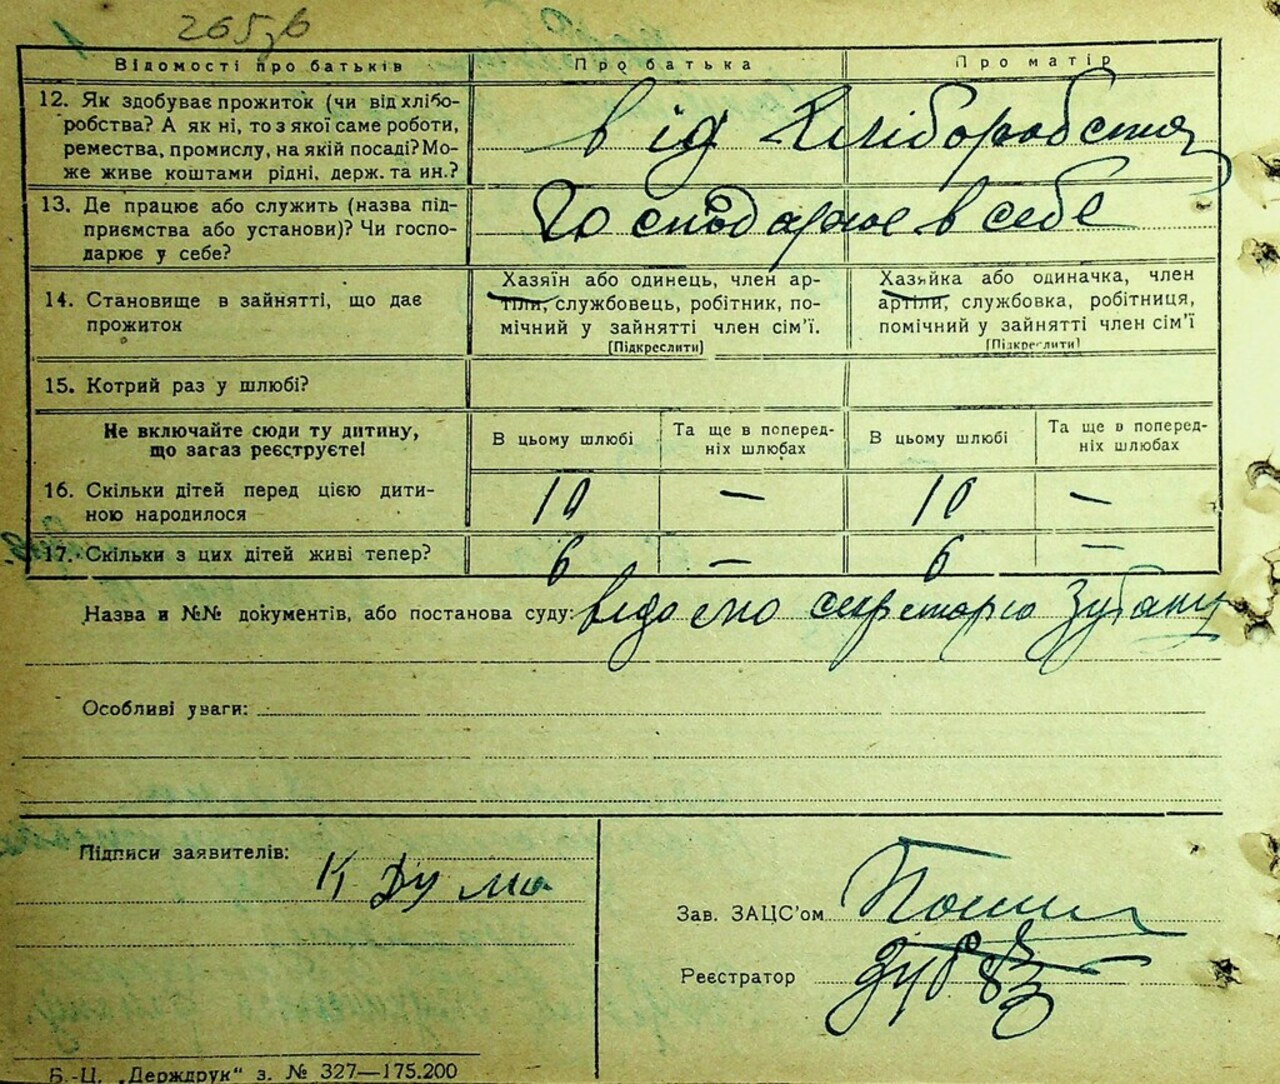 265зв
Відомості про батьків
Про батька
Про матір
12. Як здобуває прожиток (чи від хлібо-
робства? А як ні, то з якої саме роботи,
ремества, промислу, на якій посаді? Мо-
же живе коштами рідні, держ. та ин.?
від хліборобства
13. Де працює або служить (назва під-
приємства або установи)? Чи госпо-
дарює у себе?
Господарює в себе
14. Становище в зайнятті, що дає
прожиток
Хазяїн або одинець, член ар-
тіли, службовець, робітник, по-
мічний у зайнятті член сім’ї.
[Підкреслити]
Хазяйка або одиначка, член
артіли, службовка, робітниця,
помічний у зайнятті член сім’ї
[Підкреслити]
15. Котрий раз у шлюбі?
Не включайте сюди ту дитину,
що загаз реєструєте!
В цьому шлюбі
Та ще в поперед-
ніх шлюбах
В цьому шлюбі
Та ще в поперед-
ніх шлюбах
16. Скільки дітей перед цією дити-
ною народилося
10 — 10 —
17. Скільки з цих дітей живі тепер?
6 — 6 —
Назва и №№ документів, або постанова суду: відомо секретарю
Особливі уваги:
Підписи заявителів:
К Дума
Зав. ЗАЦС’ом
Реєстратор
Б.-Ц. „Держдрук“ з. № 327—175.200